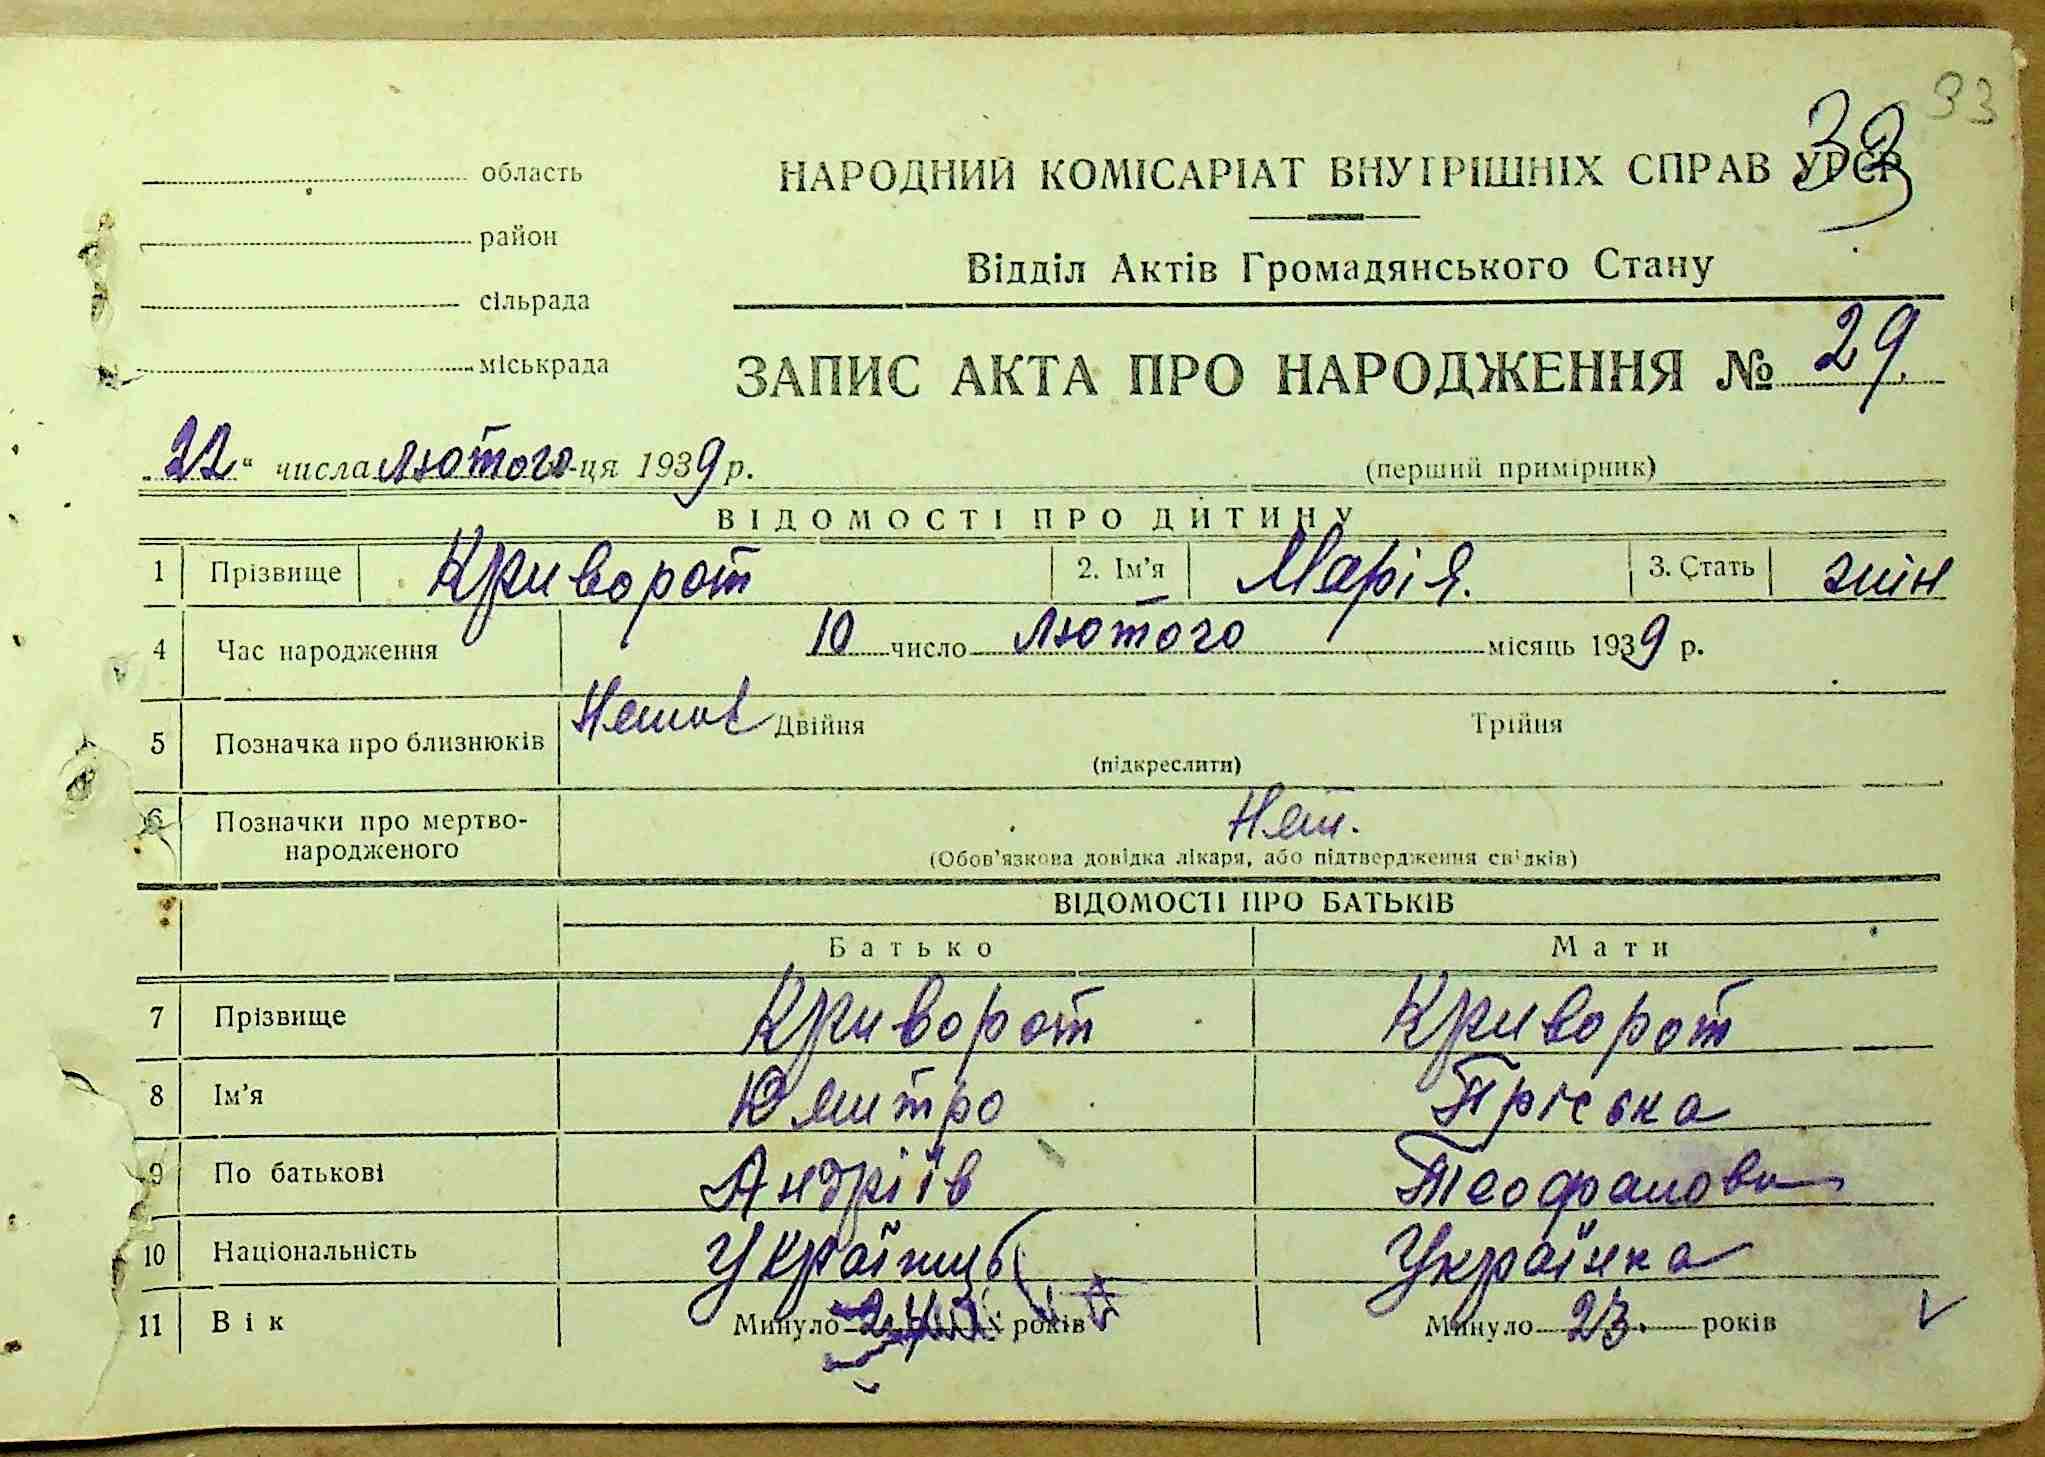 33
33
область
НАРОДНИЙ КОМІСАРІАТ ВНУТРІШНІХ СПРАВ УРСР
район
Відділ Актів Громадянського Стану
сільрада
ЗАПИС АКТА ПРО НАРОДЖЕННЯ № 29.
міськрада
„22“ числа лютого м-ця 1939 р.
(перший примірник)
ВІДОМОСТІ ПРО ДИТИНУ
1 Прізвище Криворот 2. Ім’я Марія. 3. Стать жін
4 Час народження 10 число лютого місяць 1939 р.
5 Позначка про близнюків Двійня Трійня
(підкреслити)
6 Позначки про мертво-
народженого Нет.
(Обов’язкова довідка лікаря, або підтвердження свідків)
ВІДОМОСТІ ПРО БАТЬКІВ
Батько Мати
7 Прізвище Криворот Криворот
8 Ім’я Дмитро Пріська
9 По батькові Андріїв Теофанова
10 Національність Українць Українка
11 Вік Минуло років Минуло 23. років